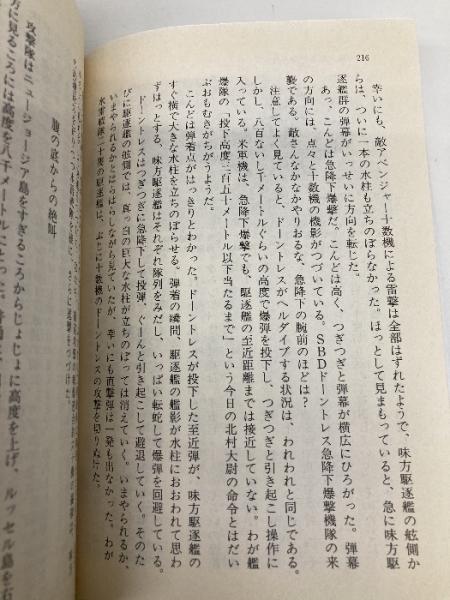 216
幸いにも、敵アベンジャー十数機による雷撃は全部はずれたようで、味方駆逐艦の舷側か
らは、ついに一本の水柱も立ちのぼらなかった。ほっとして見まもっていると、急に味方駆
逐艦群の弾幕がいっせいに方向を転じた。
あっ、こんどは急降下爆撃だ。こんどは高く、つぎつぎと弾幕が横広にひろがった。弾幕
の方向には、点々と十数機の機影がつづいている。SBDドーントレス急降下爆撃機隊の来
襲である。敵さんなかなかやりおるな。急降下の腕前のほどは？
注意してよく見ていると、ドーントレスがヘルダイブする状況は、われわれと同じである。
しかし、八百ないし一千メートルぐらいの高度で爆弾を投下し、つぎつぎと引き起こし操作に
入っている。米軍機は、急降下爆撃でも、駆逐艦の至近距離までは接近していない。わが艦
爆隊の「投下高度三百五十メートル以下当たるまで」という今日の北村大尉の命令とはだい
ぶおもむきがちがうようだ。
こんどは弾着点がはっきりとわかった。ドーントレスが投下した至近弾が、味方駆逐艦の
すぐ横で大きな水柱を立ちのぼらせる。弾着の瞬間、駆逐艦の艦影が水柱におおわれて思わ
ずはっとする。味方駆逐艦はそれぞれ隊列をみだし、いっぱい転舵して爆弾を回避している。
ドーントレスはつぎつぎに急降下して投弾、ぐーんと引き起こして避退していく。そのた
びに駆逐艦の舷側では、真っ白の巨大な水柱が立ちのぼっては消えていく。いまやられるか、
いまやられるかとはらはらしながら見ていたが、幸いにも直撃弾は一発も出なかった。わが
水雷戦隊十一隻の駆逐艦は、ぶじに十数機のドーントレスの攻撃を切りぬけた。
腹の底からの絶叫
攻撃隊はニュージョージア島をすぎるころからじょじょに高度を上げ、ルッセル島を右
方に見るころには高度を八千メートルにとった。